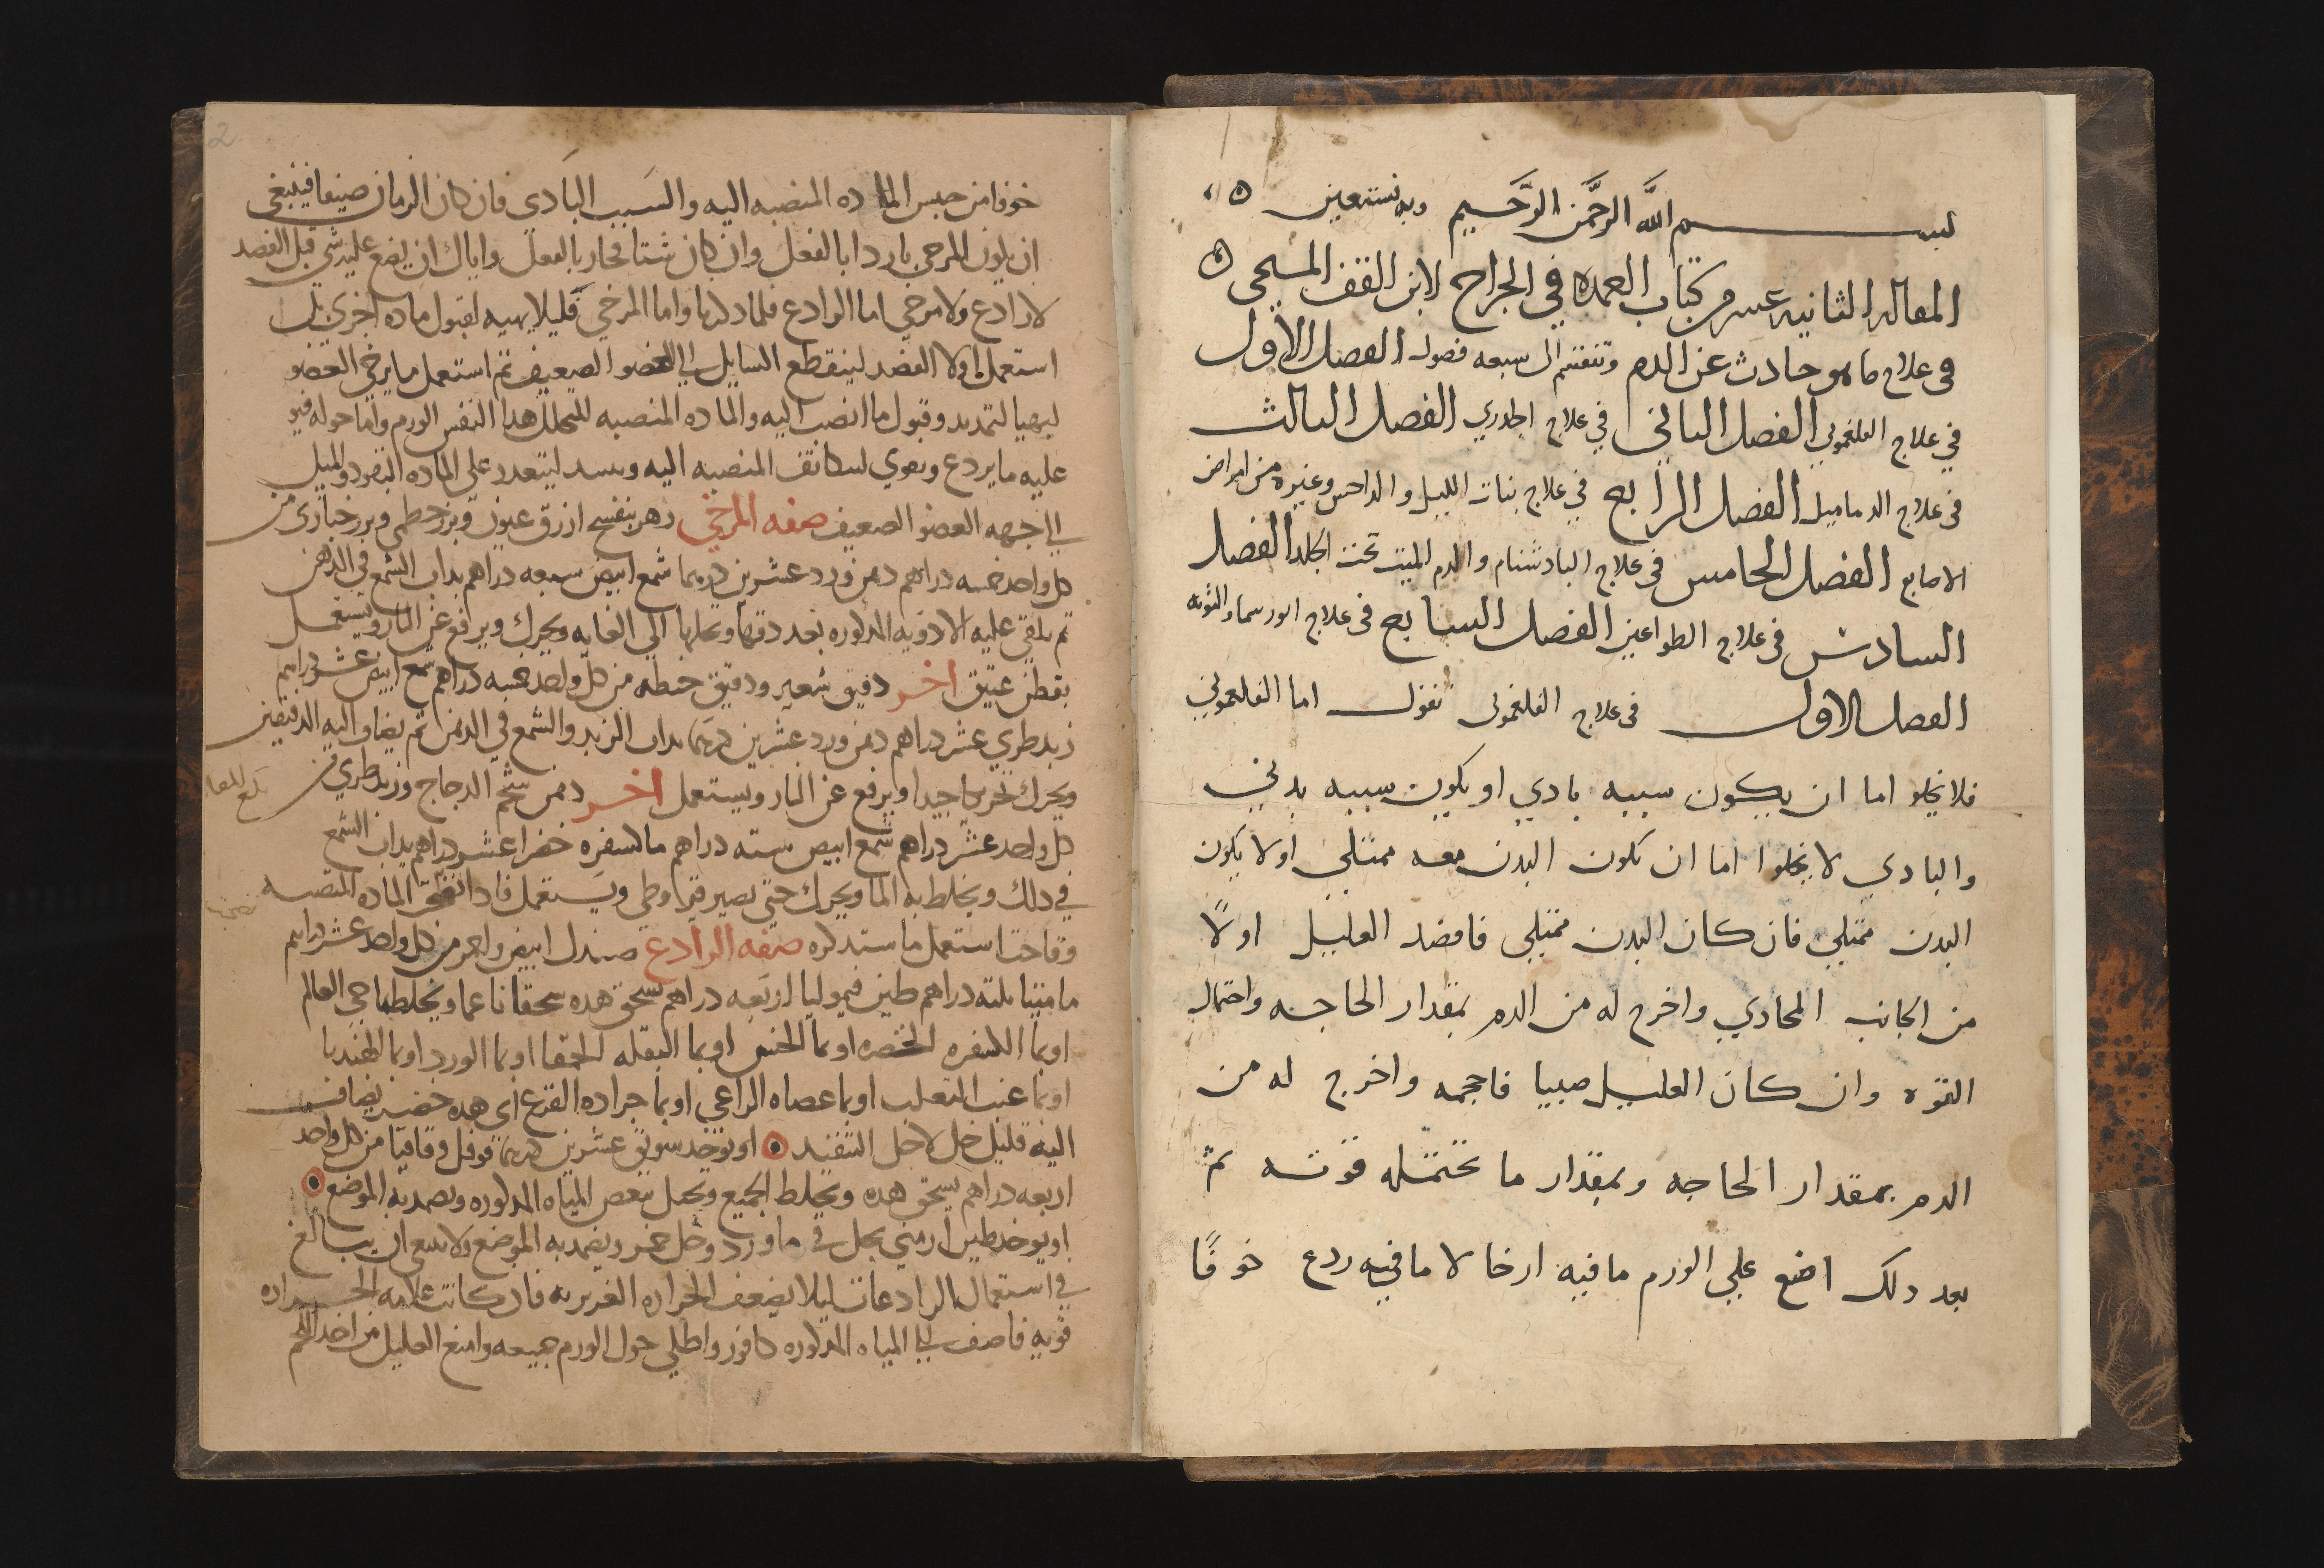 بسم الله الرحمن الرحيم وبه نستعين
المقاله الثانيه عشر من كتاب العمده في الجراح لابن القف المسيحي
في علاج ما هو حادث عن الدم وتنقسم الى سبعه فصول الفصل الأول
في علاج الفلغموني الفصل الثاني في علاج الجدري الفصل الثالث
في علاج الدماميل الفصل الرابع في علاج بنات الليل والداحس وغيره من امراض
الاصابع الفصل الخامس في علاج البادشنام والدم الميت تحت الجلد الفصل
السادس في علاج الطواعين الفصل السابع في علاج ابورسما والتوته
الفصل الاول في علاج الفلغموني نقول اما الفلغموني
فلا يخلو اما ان يكون سببه بادي او يكون سببه بدني
والبادي لا يخلوا اما ان يكون البدن معه ممتلي او لا يكون
البدن ممتلي فان كان البدن ممتلي فافصد العليل اولًا
من الجانب المحادي واخرج له من الدم بمقدار الحاجه واحتمال
القوه وان كان العليل صبيا فاحجمه واخرج له من
الدم بمقدار الحاجه وبمقدار ما تحتمله قوته ثم
بعد دلك اضع علي الورم ما فيه ارخا لا ما فيه ردع خوفًا
2
خوفا من حبس الماده المنصبه اليه والسبب البادي فان كان الزمان صيفا فينبغي
ان يكون المرخي باردا بالفعل وان كان شتا فحار بالفعل واياك ان يضع عليه شي قبل الفصد
لا رادع ولا مرخي اما الرادع فلما دكرنا واما المرخي فليلا يهيه لقبول ماده اخري بل
استعمل اولا الفصد لينقطع السايل الي العضو الضعيف ثم استعمل ما يرخي العضو
ليهيا لتمديد وقبول ما انصب اليه والماده المنصبه للتحلل هدا لنفس الورم واما حوله فيو
عليه ما يردع ويقوي ليتكاتف المنصبه اليه ويسد ليتعدر علي الماده النفود والميل
الي جهه العضو الضعيف صفه المرخي دهن بنفسج ازرق عيون وبزر خطمي وبزر خبازي من
كل واحد خمسه دراهم دهن ورد عشرين درهما شمع ابيض سبعه دراهم يداب الشمع في الدهن
ثم يلقي عليه الادويه المدكوره بعد دقها ونخلها الي الغايه ويحرك ويرفع عن النار ويستعمل
بقطن عتيق اخر دقيق شعير ودقيق حنطه من كل واحد خمسه دراهم شمع ابيض عشر دراهم
زبد طري عشر دراهم دهن ورد عشرين درهما يداب الزبد والشمع في الدهن ثم يضاف اليه الدقيقين
ويحرك تحريكا جيدا ويرفع عن النار ويستعمل اخر دهن شحم الدجاج وزبد طري من
كل واحد عشر دراهم شمع ابيض سته دراهم ما كسفره خضرا عشر دراهم يداب الشمع
في دلك ويخلط به الما ويحرك حتي يصير قيروطي ويستعمل فادا نضج الماده المنصبه
وقاحت استعمل ما سندكره صفه الرادع صندل ابيض واحمر من كل واحد عشر دراهم
ماميتا ثلثه دراهم طين قيموليا اربعه دراهم يسحق هده سحقا ناعما ويخلط بما حي العالم
او بما الكسفره الخضره او بما الخس او بما البقله الحمقا او بما الورد او بما الهندبا
او بما عنب الثعلب او بما عصاه الراعي او بما جراده القرع اي هده حضر يضاف
اليه قليل خل لاجل التنفيد او يوخد سويق عشرين درهما فوفل وقاقيا من كل واحد
اربعه دراهم يسحق هده ويخلط الجميع ويحل ببعض المياه المدكوره ويضمد به الموضع
او يوخد طين ارمني يحل في ما ورد وخل خمر ويضمد به الموضع ولا ينبغي ان يبالغ
في استعمال الرادعات ليلا يضعف الحراره الغريزيه فان كانت علامه الحراره
قويه فاضف الي المياه المدكوره كافور واطلي حول الورم جميعه وامنع العليل من اخد اللحم